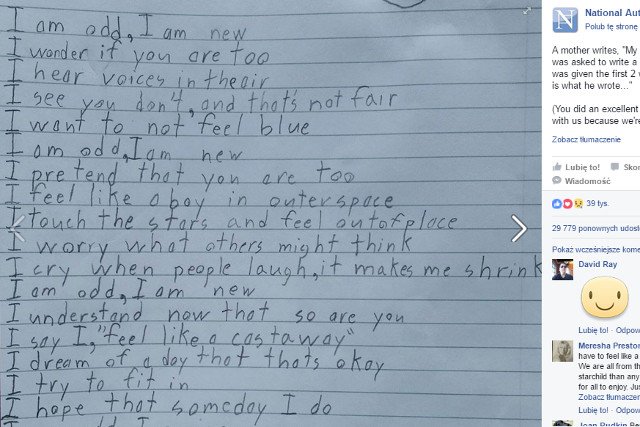 I am odd, I am new
I wonder if you are too
I hear voices in the air
I see you don't, and that's not fair
I want to not feel blue
I am odd, I am new
I pretend that you are too
I feel like a boy in outerspace
I touch the stars and feel out of place
I worry what others might think
I cry when people laugh, it makes me shrink
I am odd, I am new
I understand now that so are you
I say I, "feel like a castaway"
I dream of a day that thats okay
I try to fit in
I hope that someday I do
National Au
Polub tę stronę
A mother writes, "My
was asked to write a
was given the first 2
is what he wrote..."
(You did an excellent
with us because we're
Zobacz tłumaczenie
Lubię to!
Wiadomość
39 tys.
29 779 ponownych udost
Pokaż wcześniejsze kome
David Ray
Lubię to! · Odpow
Meresha Presto
have to feel like a
We are all from th
starchild than any
for all to enjoy. Ju
Zobacz tłumaczen
Lubię to! · Odpow